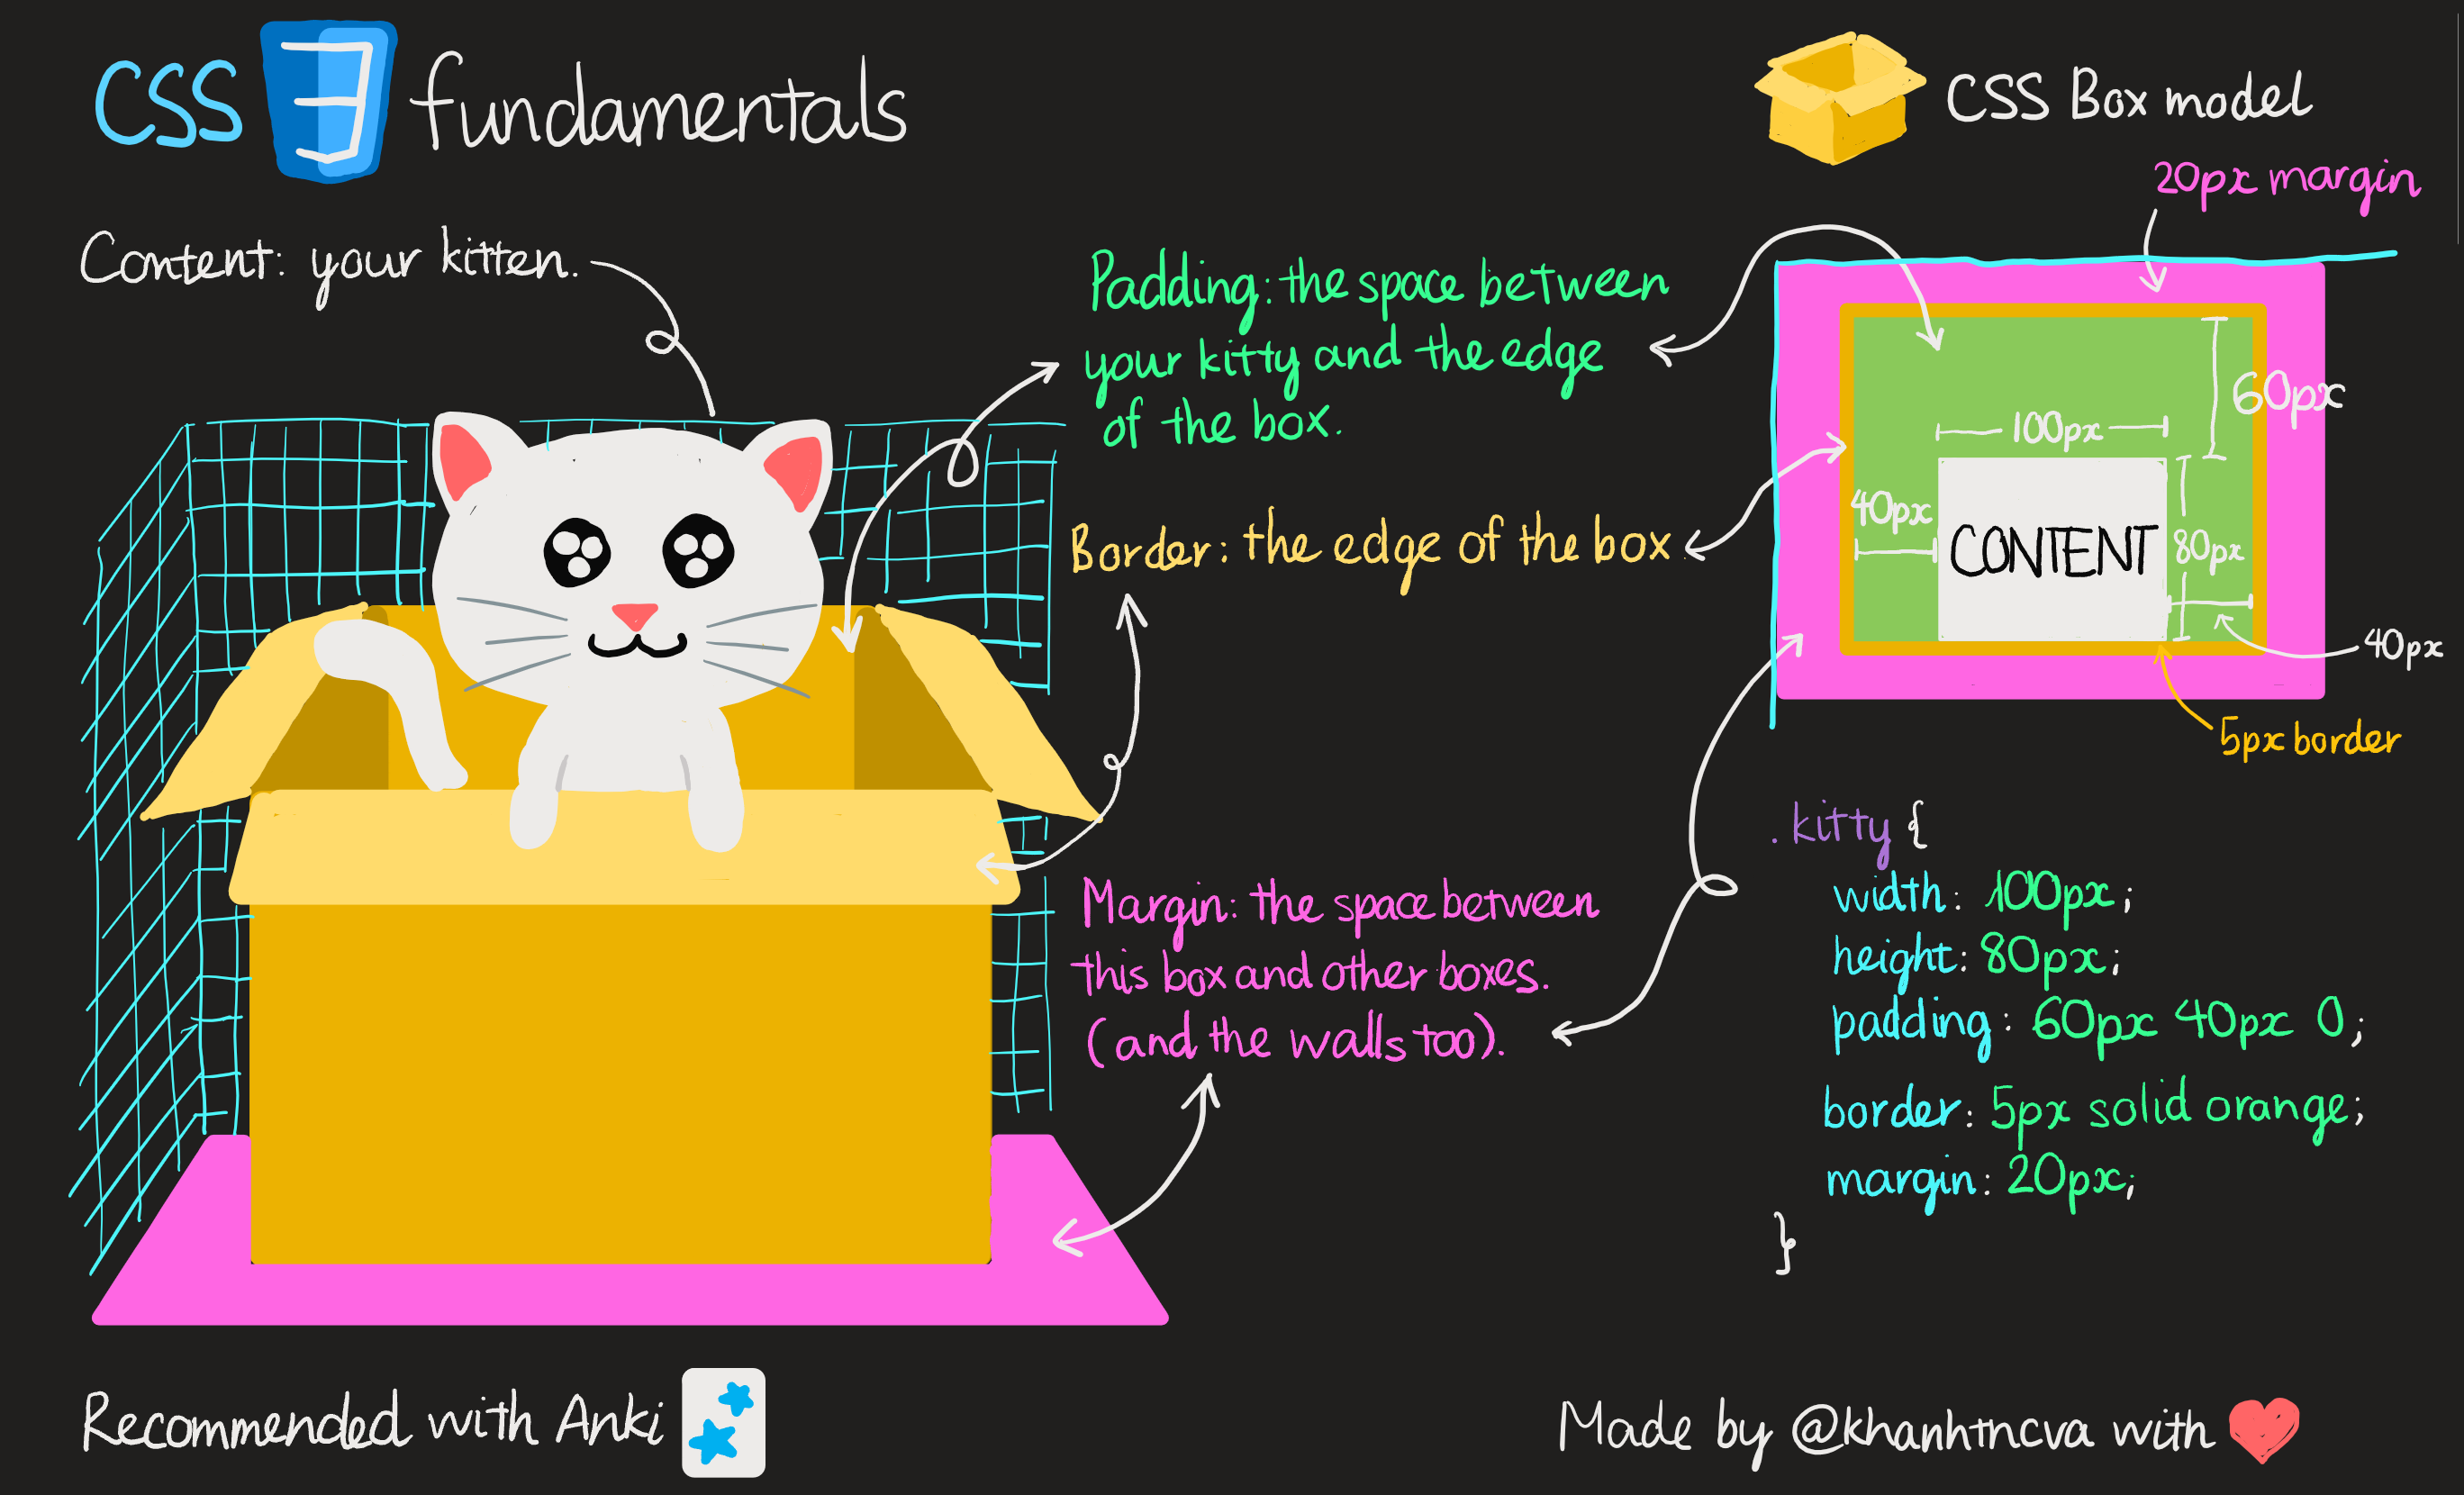 CSS fundamentals
CSS Box model
Content: your kitten.
Padding: the space between
your kitty and the edge
of the box.
Border: the edge of the box
Margin: the space between
this box and other boxes.
(and the walls too).
20px margin
60px
100px
40px
CONTENT
80px
40px
5px border
.kitty {
width: 100px;
height: 80px;
padding: 60px 40px 0;
border: 5px solid orange;
margin: 20px;
}
Recommended with Anki
Made by @khanhtncva with